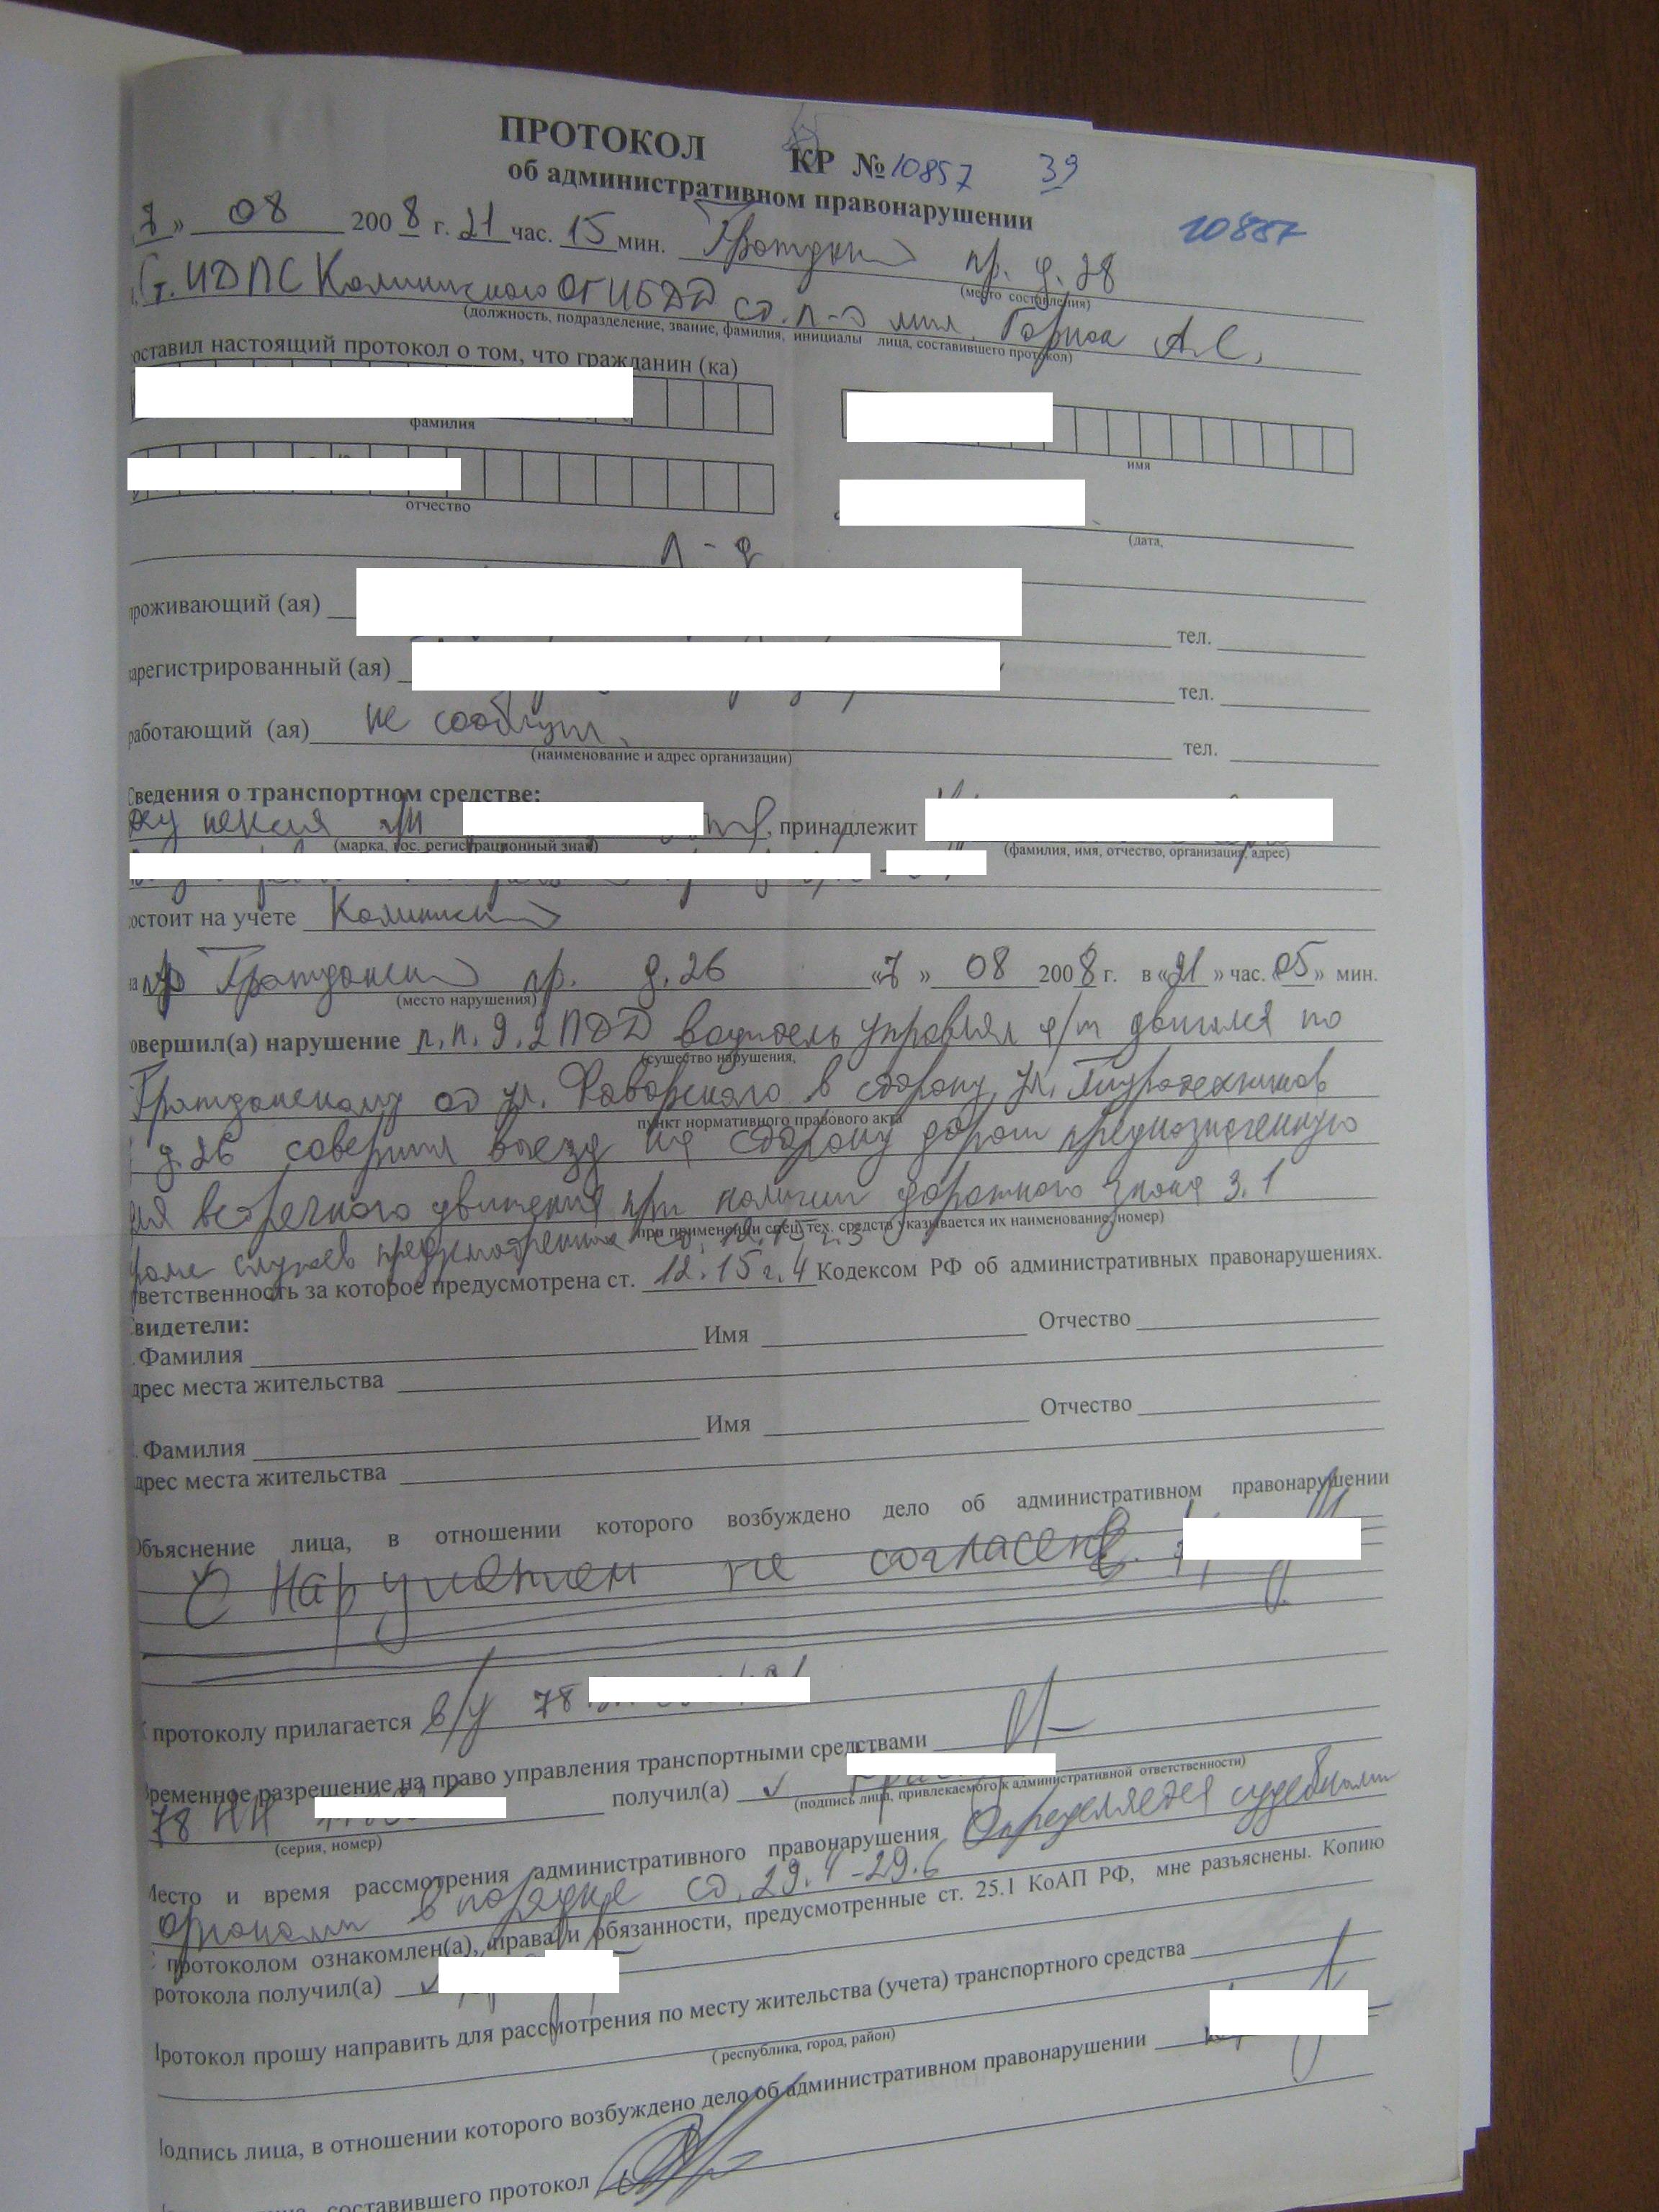 ПРОТОКОЛ КР №10857 39
об административном правонарушении
10857
7» 08 2008 г. 21 час. 15 мин. Граждански пр. д. 28
(место составления)
Ст. ИДПС Калининского ОГИБДД ст. л-т мил. А.С.
(должность, подразделение, звание, фамилия, инициалы лица, составившего протокол)
оставил настоящий протокол о том, что гражданин (ка)
фамилия
имя
отчество
(дата,
л-д
роживающий (ая) тел.
арегистрированный (ая) тел.
работающий (ая) не сообщил тел.
(наименование и адрес организации)
Сведения о транспортном средстве:
принадлежит
(марка, гос. регистрационный знак)
(фамилия, имя, отчество, организация, адрес)
остоит на учете Калински
на Граждански пр. д. 26 «7» 08 2008 г. в «21» час. «05» мин.
(место нарушения)
овершил(а) нарушение п.п. 9.2 ПДД водитель управлял а/м двигался по
(существо нарушения,
Гражданскому от ул. Фаворского в сторону ул. Гидротехников
пункт нормативного правового акта
д. 26 совершил выезд на сторону дороги предназначенную
для встречного движения при наличии дорожного знака 3.1
при применении спец. тех. средств указывается их наименование, номер)
кроме случаев предусмотренных ст. 12.15 ч. 3
тветственность за которое предусмотрена ст. 12.15 ч. 4 Кодексом РФ об административных правонарушениях.
видетели:
Фамилия Имя Отчество
дрес места жительства
Фамилия Имя Отчество
дрес места жительства
Объяснение лица, в отношении которого возбуждено дело об административном правонарушении
С нарушением не согласен
протоколу прилагается в/у 78
ременное разрешение на право управления транспортными средствами
78 НН получил(а)
(подпись лица, привлекаемого к административной ответственности)
(серия, номер)
Место и время рассмотрения административного правонарушения Определяется судебными
органами в порядке ст. 29.4-29.6
протоколом ознакомлен(а), права и обязанности, предусмотренные ст. 25.1 КоАП РФ, мне разъяснены. Копию
ротокола получил(а)
Протокол прошу направить для рассмотрения по месту жительства (учета) транспортного средства
(республика, город, район)
одпись лица, в отношении которого возбуждено дело об административном правонарушении
составившего протокол